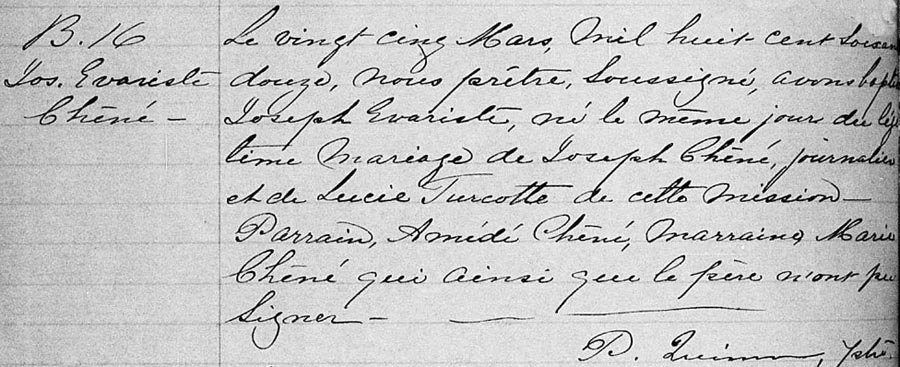 B. 16
Jos. Evariste
Chêné -
Le vingt cinq Mars, Mil huit-cent Soixan
douze, nous prêtre, Soussigné, avons baptis
Joseph Evariste, né le même jour du légi
time Mariage de Joseph Chêné, journalier
et de Lucie Turcotte de cette Mission -
Parrain, Amédé Chêné, Marraine Marie
Chêné qui ainsi que le père n'ont pu
Signer -
P. Quinn, Ptre.